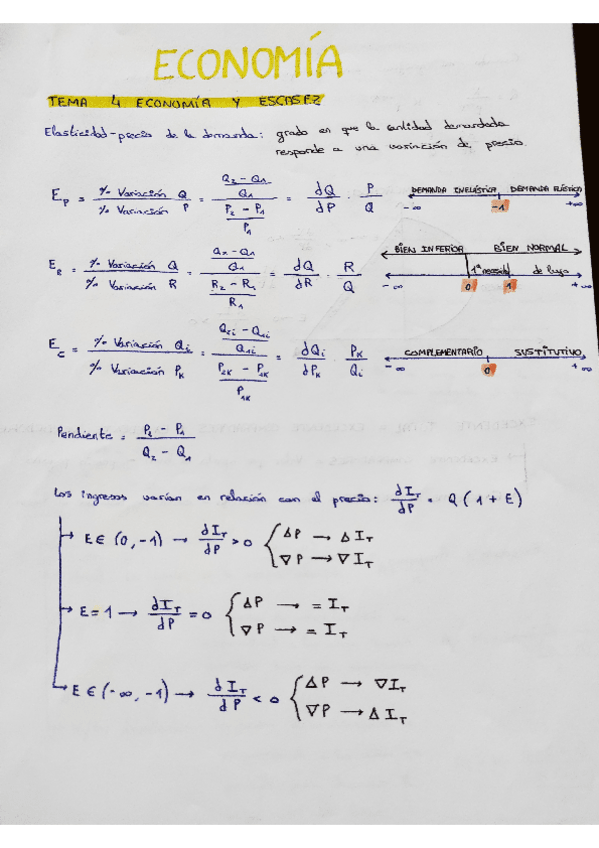 ECONOMÍA
TEMA 4 ECONOMÍA Y ESCASEZ
Elasticidad-precio de la demanda: grado en que la cantidad demandada
responde a una variación de precio.
E_P = % Variación Q / % Variación P = ((Q₂ - Q₁)/Q₁) / ((P₂ - P₁)/P₁) = dQ/dP · P/Q
DEMANDA INELÁSTICA DEMANDA ELÁSTICA
-∞ -1 +∞
E_R = % Variación Q / % Variación R = ((Q₂ - Q₁)/Q₁) / ((R₂ - R₁)/R₁) = dQ/dR · R/Q
BIEN INFERIOR BIEN NORMAL
1ª necesidad de lujo
-∞ 0 1 +∞
E_C = % Variación Qi / % Variación P_K = ((Q₂i - Q₁i)/Q₁i) / ((P₂K - P₁K)/P₁K) = dQi/dP_K · P_K/Qi
COMPLEMENTARIO SUSTITUTIVO
-∞ 0 +∞
Pendiente = (P₂ - P₁) / (Q₂ - Q₁)
Los ingresos varían en relación con el precio: dI_T/dP = Q (1 + E)
E∈(0, -1) → dI_T/dP > 0 { ΔP → ΔI_T
∇P → ∇I_T
E = 1 → dI_T/dP = 0 { ΔP → = I_T
∇P → = I_T
E∈(-∞, -1) → dI_T/dP < 0 { ΔP → ∇I_T
∇P → ΔI_T